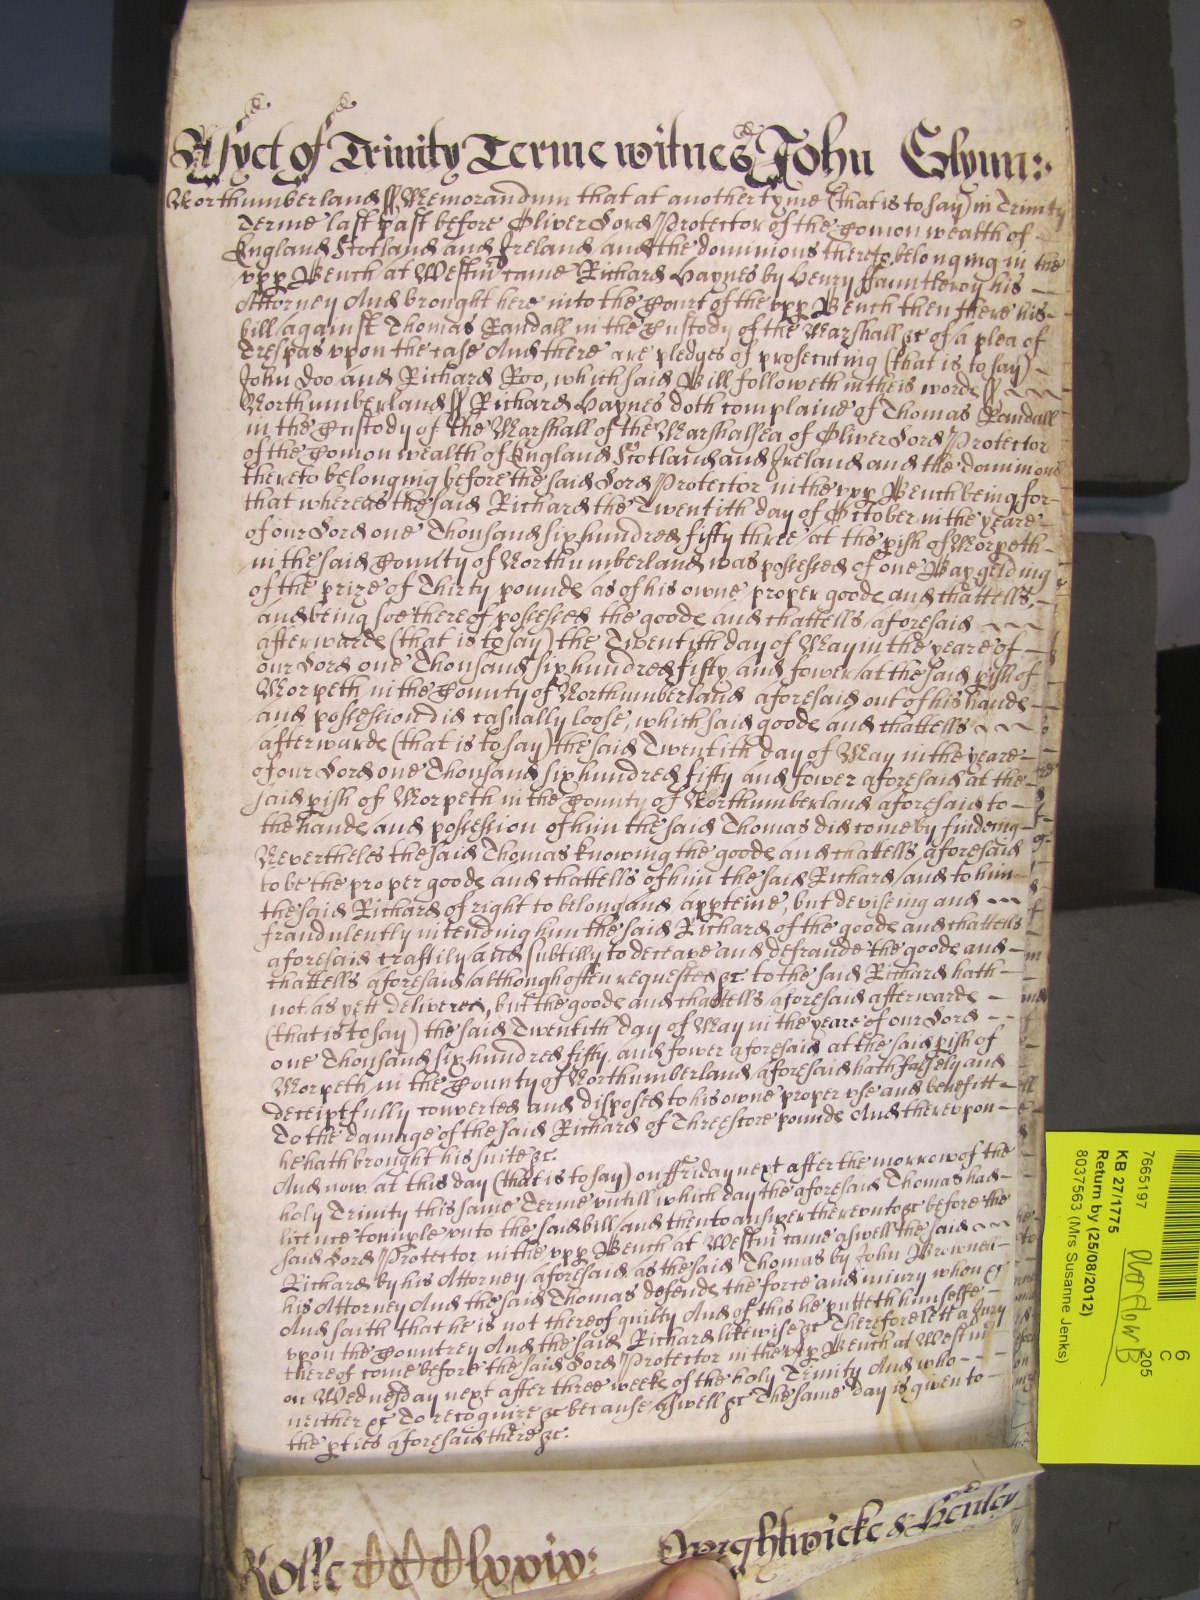 As yet of Trinity Terme witnes John Glynn:
Northumberland ss Memorandum that at another tyme (that is to say) in Trinity
Terme last past before Oliver Lord Protector of the Comon wealth of
England Scotland and Ireland and the dominions thereto belonging in the
vpp Bench at Westm came Richard Haynes by Henry ffauntleroy his
Attorney And brought here into the Court of the vpp Bench then there his
bill against Thomas Randall in the Custody of the Marshall &c of a plea of
Trespas vpon the case And there are pledges of prosecuting (that is to say)
John Doo and Richard Roo, which said Bill followeth in theis words ss
Northumberland ss Richard Haynes doth complaine of Thomas Randall
in the Custody of the Marshall of the Marshallsea of Oliver Lord Protector
of the Comon wealth of England Scotland and Ireland and the dominions
thereto belonging before the said Lord Protector in the vpp Bench being for
that whereas the said Richard the Twentith day of October in the yeare
of our Lord one Thousand six hundred fifty three at the pish of Morpeth
in the said County of Northumberland was possessed of one Bay gelding
of the prize of Thirty pounds as of his owne proper goods and chattells,
and being soe thereof possessed the goods and chattells aforesaid
afterwards (that is to say) the Twentith day of May in the yeare of
our Lord one Thousand six hundred fifty and fower at the said pish of
Morpeth in the County of Northumberland aforesaid out of his hands
and possession did casually loose, which said goods and chattells
afterwards (that is to say) the said Twentith day of May in the yeare
of our Lord one Thousand six hundred fifty and fower aforesaid at the
said pish of Morpeth in the County of Northumberland aforesaid to
the hands and possession of him the said Thomas did come by finding
Nevertheles the said Thomas knowing the goods and chattells aforesaid
to be the proper goods and chattells of him the said Richard and to him
the said Richard of right to belong and apperteine, but deviseing and
fraudulently intending him the said Richard of the goods and chattells
aforesaid craftily and subtilly to deceave and defraude the goods and
chattells aforesaid although often requested &c to the said Richard hath
not as yett delivered, but the goods and chattells aforesaid afterwards
(that is to say) the said Twentith day of May in the yeare of our Lord
one Thousand six hundred fifty and fower aforesaid at the said pish of
Morpeth in the County of Northumberland aforesaid hath falsely and
deceiptfully converted and disposed to his owne proper vse and benefitt
To the damage of the said Richard of Threescore pounds And therevpon
he hath brought his suite &c.
And now at this day (that is to say) on ffriday next after the morrow of the
holy Trinity this same Terme vntill which day the aforesaid Thomas had
licence to imple vnto the said bill and then to answer therevnto &c before the
said Lord Protector in the vpp Bench at Westm came aswell the said
Richard by his Attorney aforesaid as the said Thomas by John Browne
his Attorney And the said Thomas defends the force and iniury when &c
And saith that he is not thereof guilty And of this he putteth himselfe
vpon the Countrey And the said Richard likewise &c Therefore lett a Jury
thereof come before the said Lord Protector in the vpp Bench at Westm
on Wednesday next after three weeks of the holy Trinity And who
neither &c To recognize &c because aswell &c The same day is given to
the pties aforesaid there &c.
Rolle lxxix: Wightwicke & Henley
7665197
KB 27/1775
Return by (25/08/2012)
8037563 (Mrs Susanne Jenks)
overflow B
6
C
205